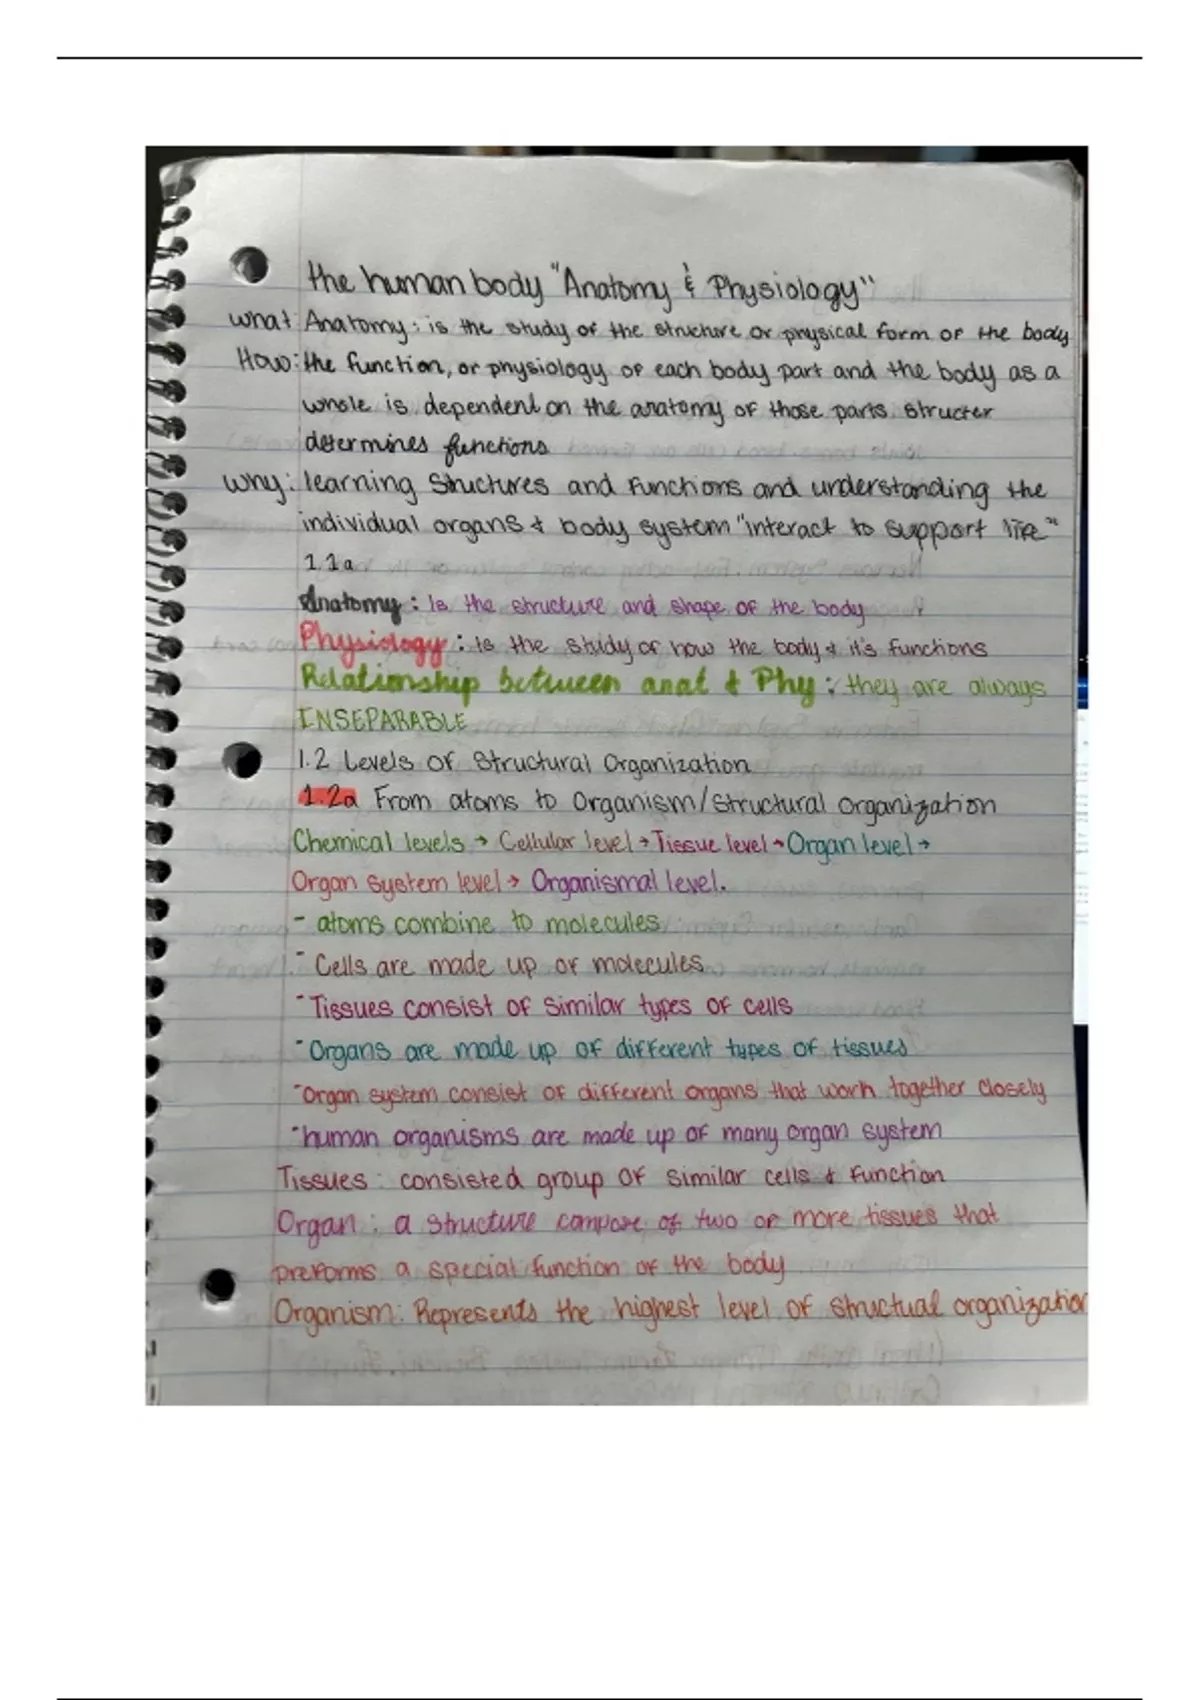 the human body "Anatomy & Physiology"
what: Anatomy: is the study of the structure or physical form of the body
How: the function, or physiology of each body part and the body as a
whole is dependent on the anatomy of those parts. structer
determines functions
why: learning Structures and Functions and understanding the
individual organs & body system "interact to support life"
1.1a
Anatomy: Is the structure and shape of the body
Physiology: Is the study of how the body & it's functions
Relationship between anat & Phy: they are always
INSEPARABLE
1.2 Levels of Structural Organization
1.2a From atoms to Organism/Structural organization
Chemical levels → Cellular level → Tissue level → Organ level →
Organ system level → Organismal level.
- atoms combine to molecules
- Cells are made up of molecules
- Tissues consist of similar types of cells
- Organs are made up of different types of tissues
- Organ system consist of different organs that work together closely
- human organisms are made up of many organ system
Tissues: consisted group of similar cells & function
Organ: a structure compose of two or more tissues that
preforms a special function of the body
Organism: Represents the highest level of structual organization